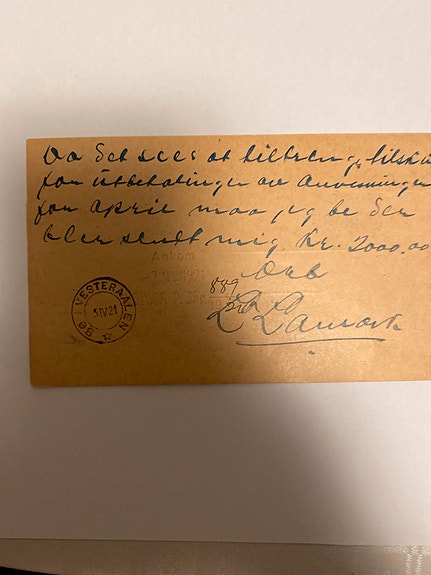 Da det sees at tiltrenges tilsku
for utbetalinger av anvisninger
for april maa jeg be der
blir sendt mig Kr. 2000.00
Ankom
889
Ørb
BØ I VESTERAALEN
5 IV 21